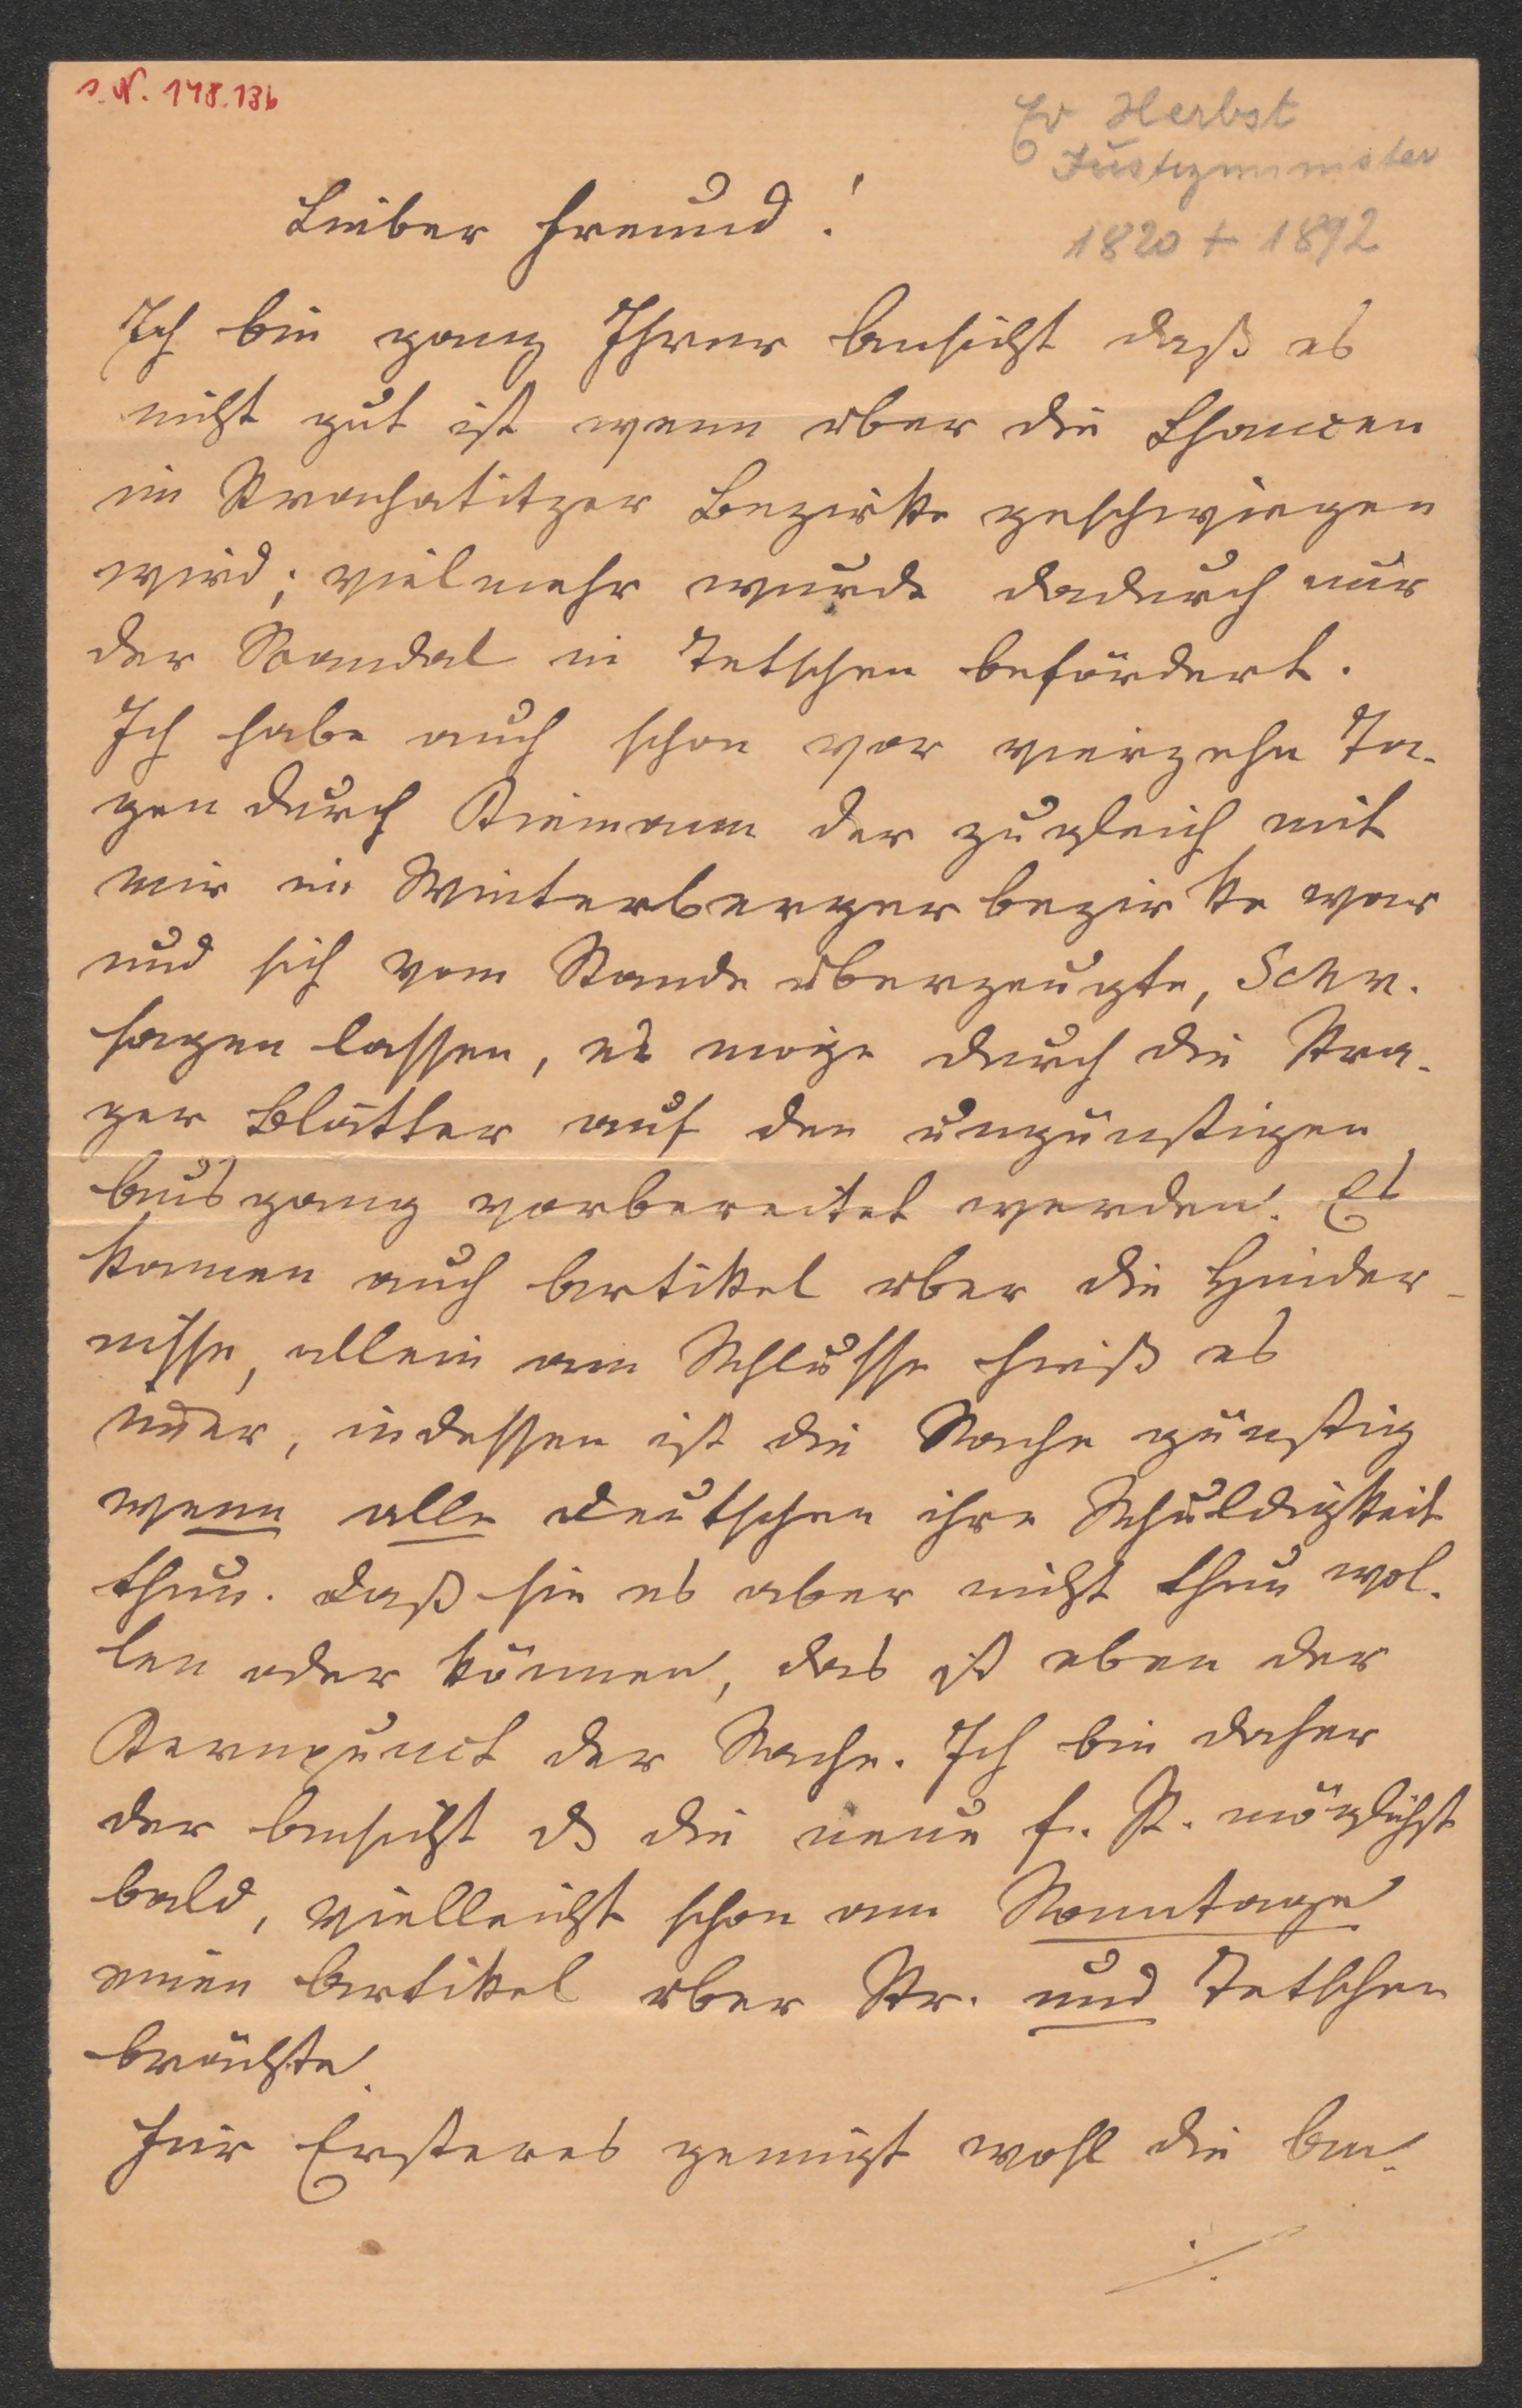 I. N. 148.136
Ed Herbst
Justizminister
1820 + 1892
Lieber Freund!
Ich bin ganz Ihrer Ansicht daß es
nicht gut ist wenn über die Chancen
im Prachatitzer Bezirke geschwiegen
wird; vielmehr wurde dadurch nur
der Scandal in Tetschen befördert.
Ich habe auch schon vor vierzehn Ta-
gen durch Kiemann der zugleich mit
mir im Winterberger bezirke war
und sich vom Stande überzeugte, Schm.
sagen lassen, es möge durch die Pra-
ger Blätter auf den ungünstigen
Ausgang vorbereitet werden. Es
kamen auch Artikel über die Hinder-
nisse, allein am Schlusse hieß es
im̅er, indessen ist die Sache günstig
wenn alle Deutschen ihre Schuldigkeit
thun. Daß sie es aber nicht thun wol-
len oder können, das ist eben der
Kernpunct der Sache. Ich bin daher
der Ansicht ds die neue f. P. möglichst
bald, vielleicht schon am Sonntage
einen Artikel über Pr. und Tetschen
brächte.
Für Ersteres genügt wohl die An-
./.